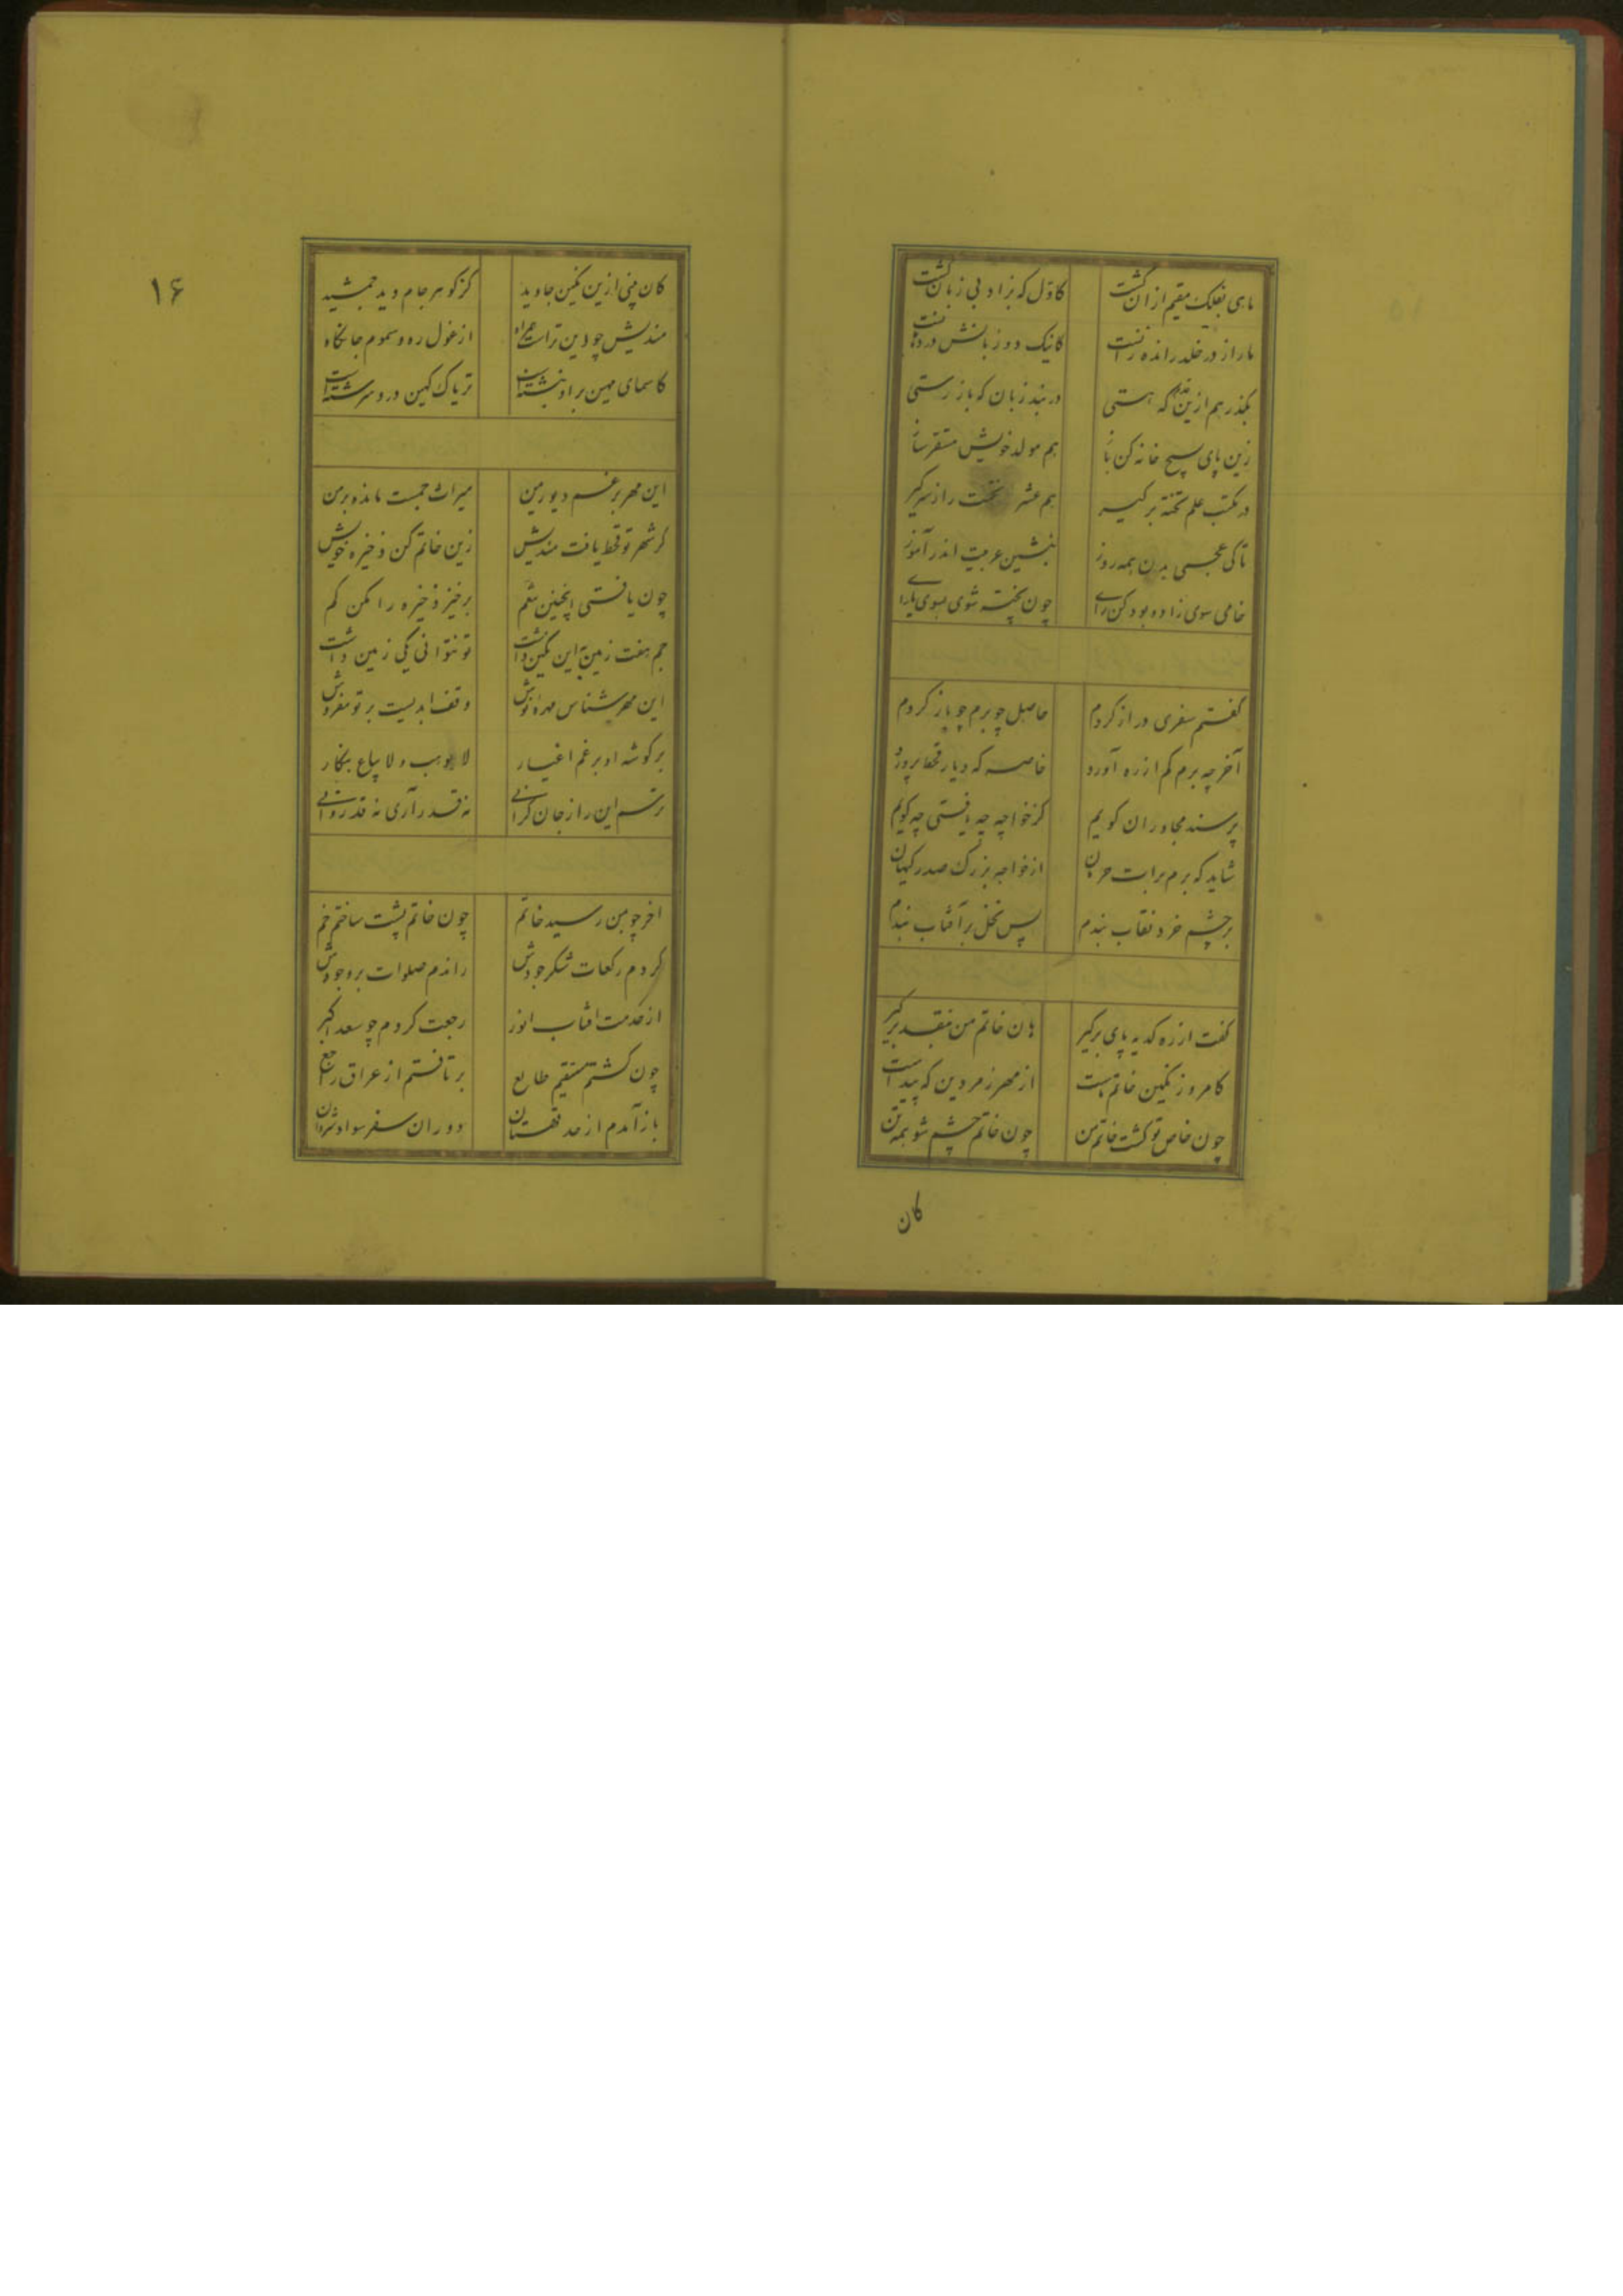 ماهی بفلک مقیم ازان گشت کاول که بزاد بی زبان گشت
مار از در خلد رانده زانست کانیک دو زبانش در دهانست
بگذر هم ازین قدم که هستی در بند زبان که باز رستی
زین پای بسیج خانه کن باز هم مولد خویش مستقر ساز
در مکتب علم تخته برگیر هم عشر نخست را ز سر گیر
تا کی عجمی بدن همه روز بنشین عربیت اندر آموز
خامی سوی زاده بود کن رای چون پخته شوی بسوی ما را
گفتم سفری دراز کردم حاصل چو برم چو باز کردم
آخر چه برم کم از ره آورد خاصه که دیار قحط پرورد
پرسند مجاوران کویم کز خواجه چه یافتی چه گویم
شاید که برم برات حرمان از خواجه بزرگ صدر گیهان
بر چشم خرد نقاب بندم پس نخل بر آفتاب بندم
گفت از ره کدیه پای برگیر هان خاتم من بنقد برگیر
کامروز نگین خاتم ماست از مهر زمردین که پیداست
چون خاص تو گشت خاتم من چون خاتم چشم شو همه تن
کان
۱۶
کان بینی ازین نگین جاوید کز گوهر جام دید جمشید
مندیش چو این تراست همراه از غول ره و سموم جانکاه
کاسمای مهین بر او نبشته است تریاک گهین درو سرشته است
این مهر برغم دیو ریمن میراث جمست مانده بر من
گر شهر تو قحط یافت مندیش زین خاتم کن ذخیره خویش
چون یافتی اینچنین نعم برخیز ذخیره را مکن کم
جم هفت زمین باین نگین داشت تو نتوانی یکی زمین داشت
این مهر شناس مهره نوش وقف ابدیست بر تو مفروش
بر گوشه او برغم اغیار لایوهب و لایباع بنگار
ترسم این را ز جان گرانی نه قدر آری نه قدر دانی
اخر چو بمن رسید خاتم چون خاتم پشت ساختم خم
کردم رکعات شکر جودش راندم صلوات بر وجودش
از خدمت افتاب انور رجعت کردم چو سعد اکبر
چون گشتم مستقیم طالع بر تافتم از عراق راجع
باز آمدم از حد قهستان دوران سفر سواد شروان